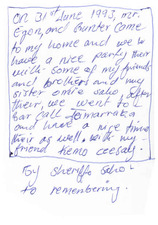 On 31st June 1993, Mr.
Egon, and Gunter come
to my home and we to
have a nice party their
with some of my friends
and brothers and my
sister Emie Saho, after
their, we went to a
bar call Jamarraka
and have a nice time
their as well with my
friend Kemo Ceesay.
By Sheriffo Saho
to remembering.